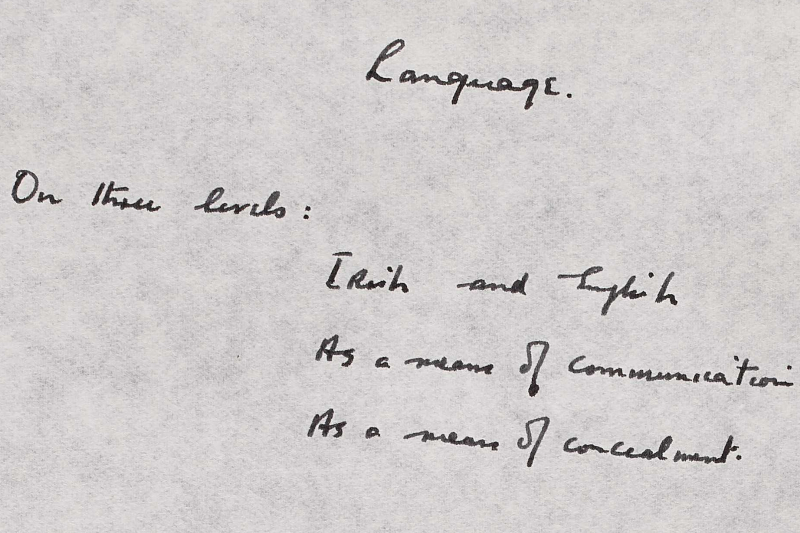 Language.
On three levels:
Irish and English
As a means of communication
As a means of concealment.